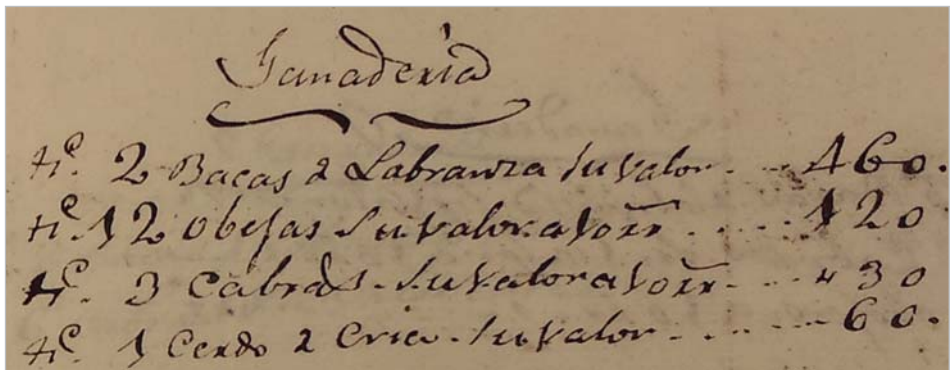 Ganaderia
Yt. 2 Bacas d Labranza su valor 460.
Yt. 12 obejas su valor a 10 rr 120
Yt. 3 Cabras su valor a 10 rr 30
Yt. 1 Cerdo d Cria su valor 60.